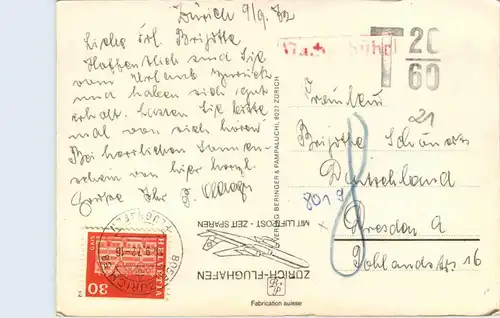 Zürich 9/9. 72
Liebe Frl. Brigitte
Hoffentlich sind Sie
vom Urlaub zurück
und haben sich gut
erholt. Lassen Sie bitte
mal von sich hören
Bei herrlichem Sonnen-
schein von hier herzl.
Grüsse Ihr
T 20
60
Fräulein
21
Brigitte
Deutschland
8019
Dresden A
Pohlandstr. 16
VERLAG BERINGER & PAMPALUCHI, 8027 ZÜRICH
MIT LUFTPOST - ZEIT SPAREN
ZÜRICH-FLUGHAFEN
B+P
Fabrication suisse
HELVETIA
30